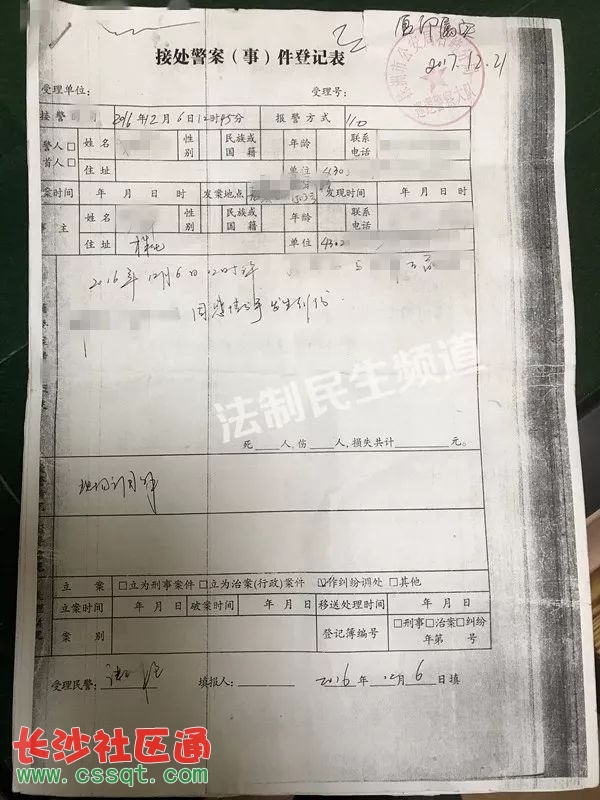 复印属实
2017.12.21
接处警案（事）件登记表
受理单位： 受理号：
接警时间 2016年12月6日12时45分 报警方式 110
警人□ 姓名 性别 民族或国籍 年龄 联系电话
首人□ 住址 单位 430
案时间 年 月 日 时 发案地点 发现时间 年 月 日 时
事主 姓名 性别 民族或国籍 年龄 联系电话
住址 单位 4302
2016年12月6日12时许 与
因感情纠纷发生纠纷
法制民生频道
死 人，伤 人，损失共计 元。
现场调解
立案 □立为刑事案件 □立为治案(行政)案件 ☑作纠纷调处 □其他
立案时间 年 月 日 破案时间 年 月 日 移送处理时间 年 月 日
案别 登记簿编号 □刑事□治案□纠纷
年第 号
受理民警： 填报人： 2016年12月6日填
长沙社区通
www.cssqt.com